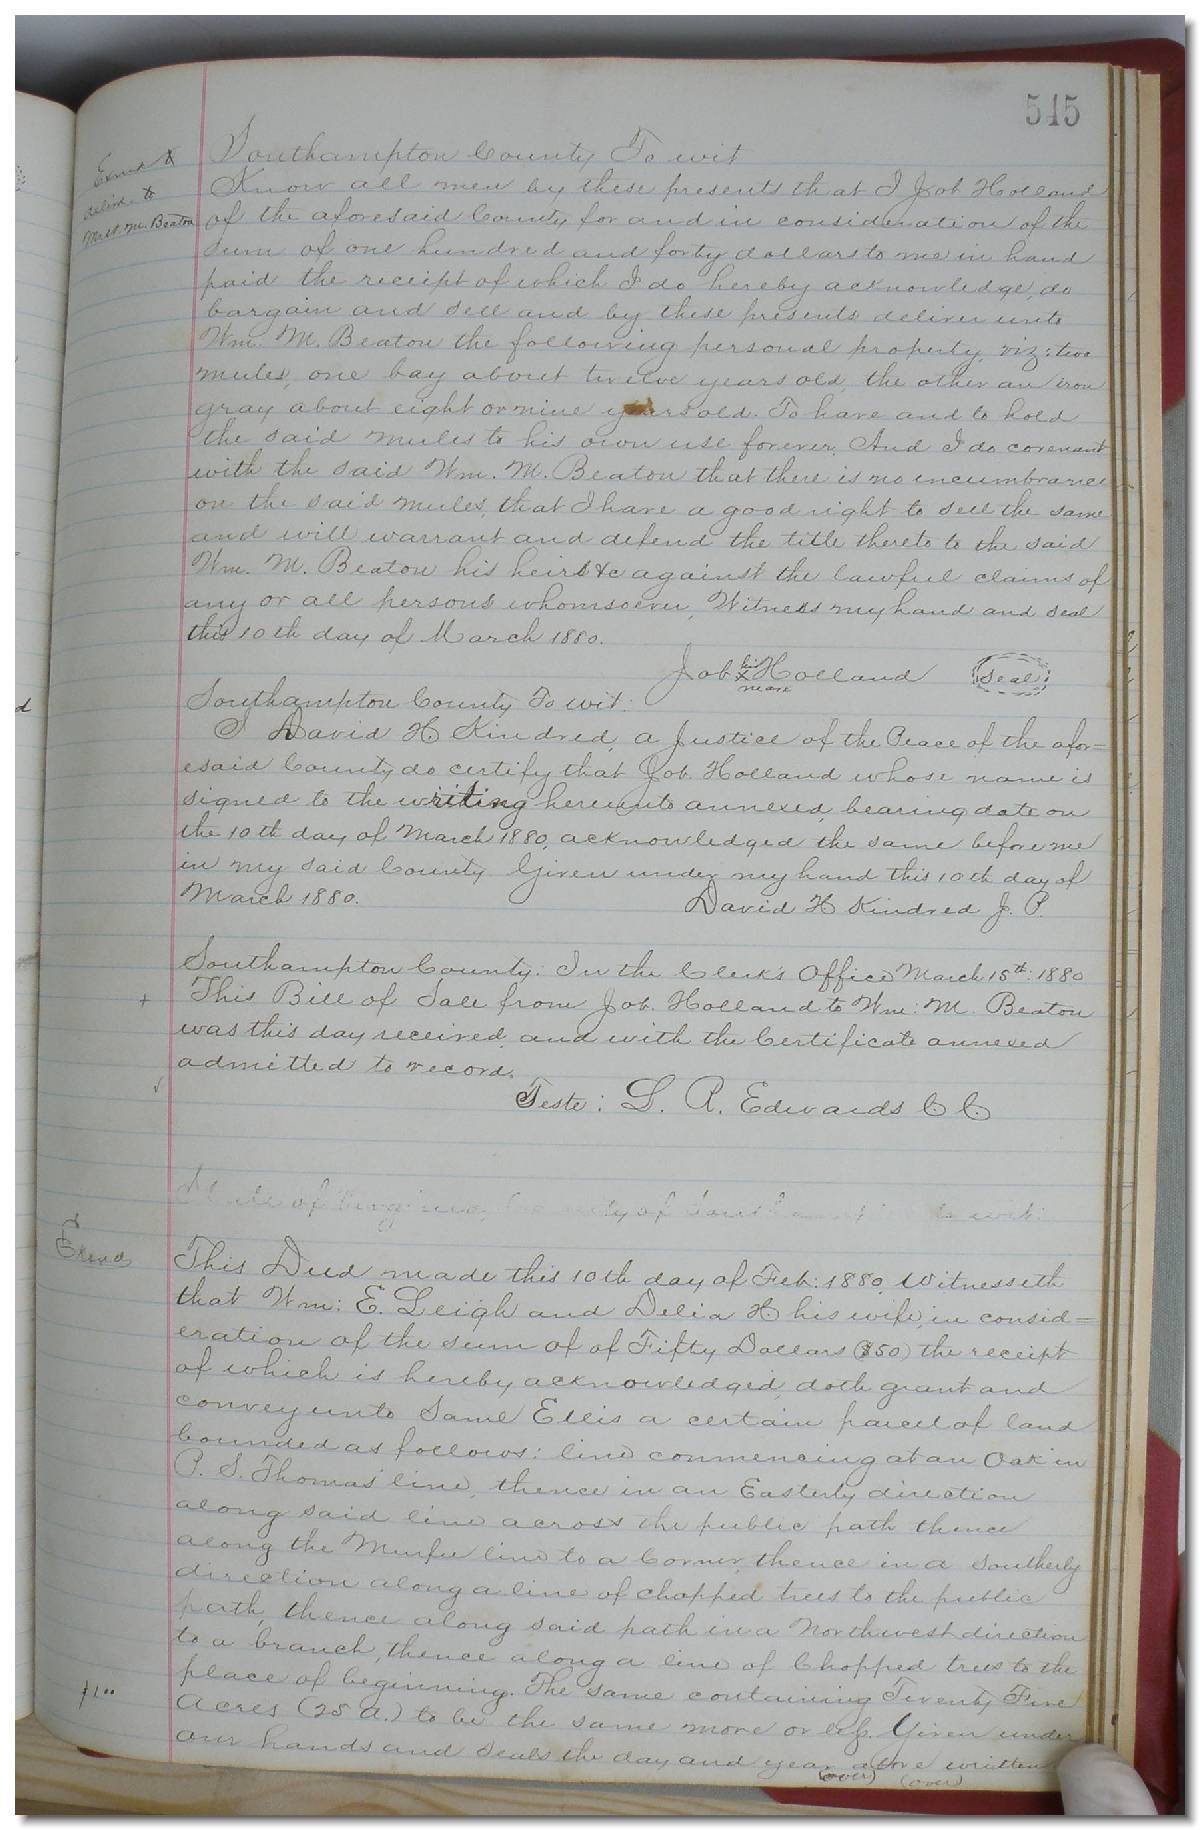 545
Southampton County To wit
Know all men by these presents that I Job Holland
of the aforesaid County for and in consideration of the
sum of one hundred and forty dollars to me in hand
paid the receipt of which I do hereby acknowledge, do
bargain and sell and by these presents deliver unto
Wm. M. Beaton the following personal property, viz: two
mules, one bay about twelve years old, the other an iron
gray, about eight or nine years old. To have and to hold
the said mules to his own use forever. And I do covenant
with the said Wm. M. Beaton that there is no incumbrance
on the said mules, that I have a good right to sell the same
and will warrant and defend the title thereto to the said
Wm. M. Beaton his heirs &c against the lawful claims of
any or all persons whomsoever, Witness my hand and seal
this 10th day of March 1880.
Job his X mark Holland Seal
Southampton County To wit:
I David H Kindred, a Justice of the Peace of the afor=
esaid County do certify that Job. Holland whose name is
signed to the writing hereunto annexed, bearing date on
the 10th day of March 1880, acknowledged the same before me
in my said County Given under my hand this 10th day of
March 1880.
David H Kindred J. P.
Southampton County: In the Clerk's Office March 15th: 1880
This Bill of Sale from Job. Holland to Wm: M. Beaton
was this day received, and with the Certificate annexed
admitted to record.
Teste: L. R. Edwards C C
State of Virginia, County of to wit:
Exmd
This Deed made this 10th day of Feb: 1880, Witnesseth
that Wm: E. Leigh and Delia H his wife, in consid=
eration of the sum of of Fifty Dollars ($50) the receipt
of which is hereby acknowledged, doth grant and
convey unto Saml Ellis a certain parcel of land
bounded as follows: line commencing at an Oak in
P. S. Thomas' line, thence in an Easterly direction
along said line across the public path thence
along the line to a Corner, thence in a Southerly
direction along a line of chopped trees to the public
path, thence along said path in a Northwest direction
to a branch, thence along a line of Chopped trees to the
place of beginning. The same containing Twenty Five
Acres (25 A.) to be the same more or less. Given under
our hands and seals the day and year above written
(over) (over)
Exmd &
delivd to
M. Beaton
$1.00